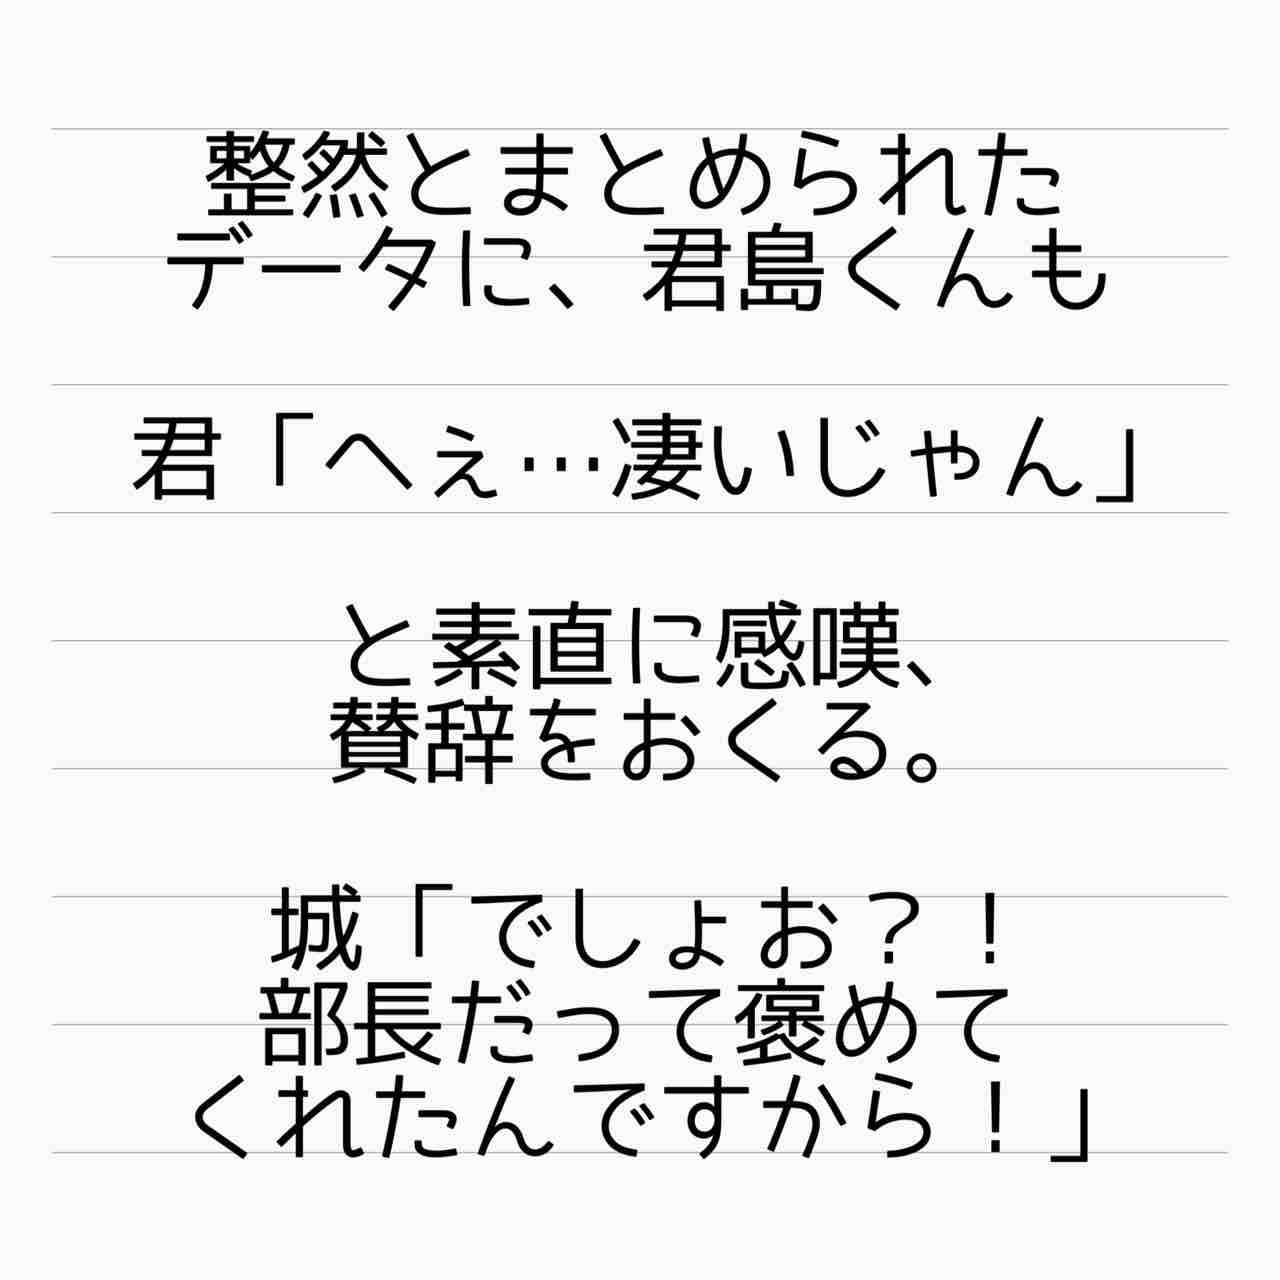 整然とまとめられた
データに、君島くんも
君「へぇ…凄いじゃん」
と素直に感嘆、
賛辞をおくる。
城「でしょお？！
部長だって褒めて
くれたんですから！」